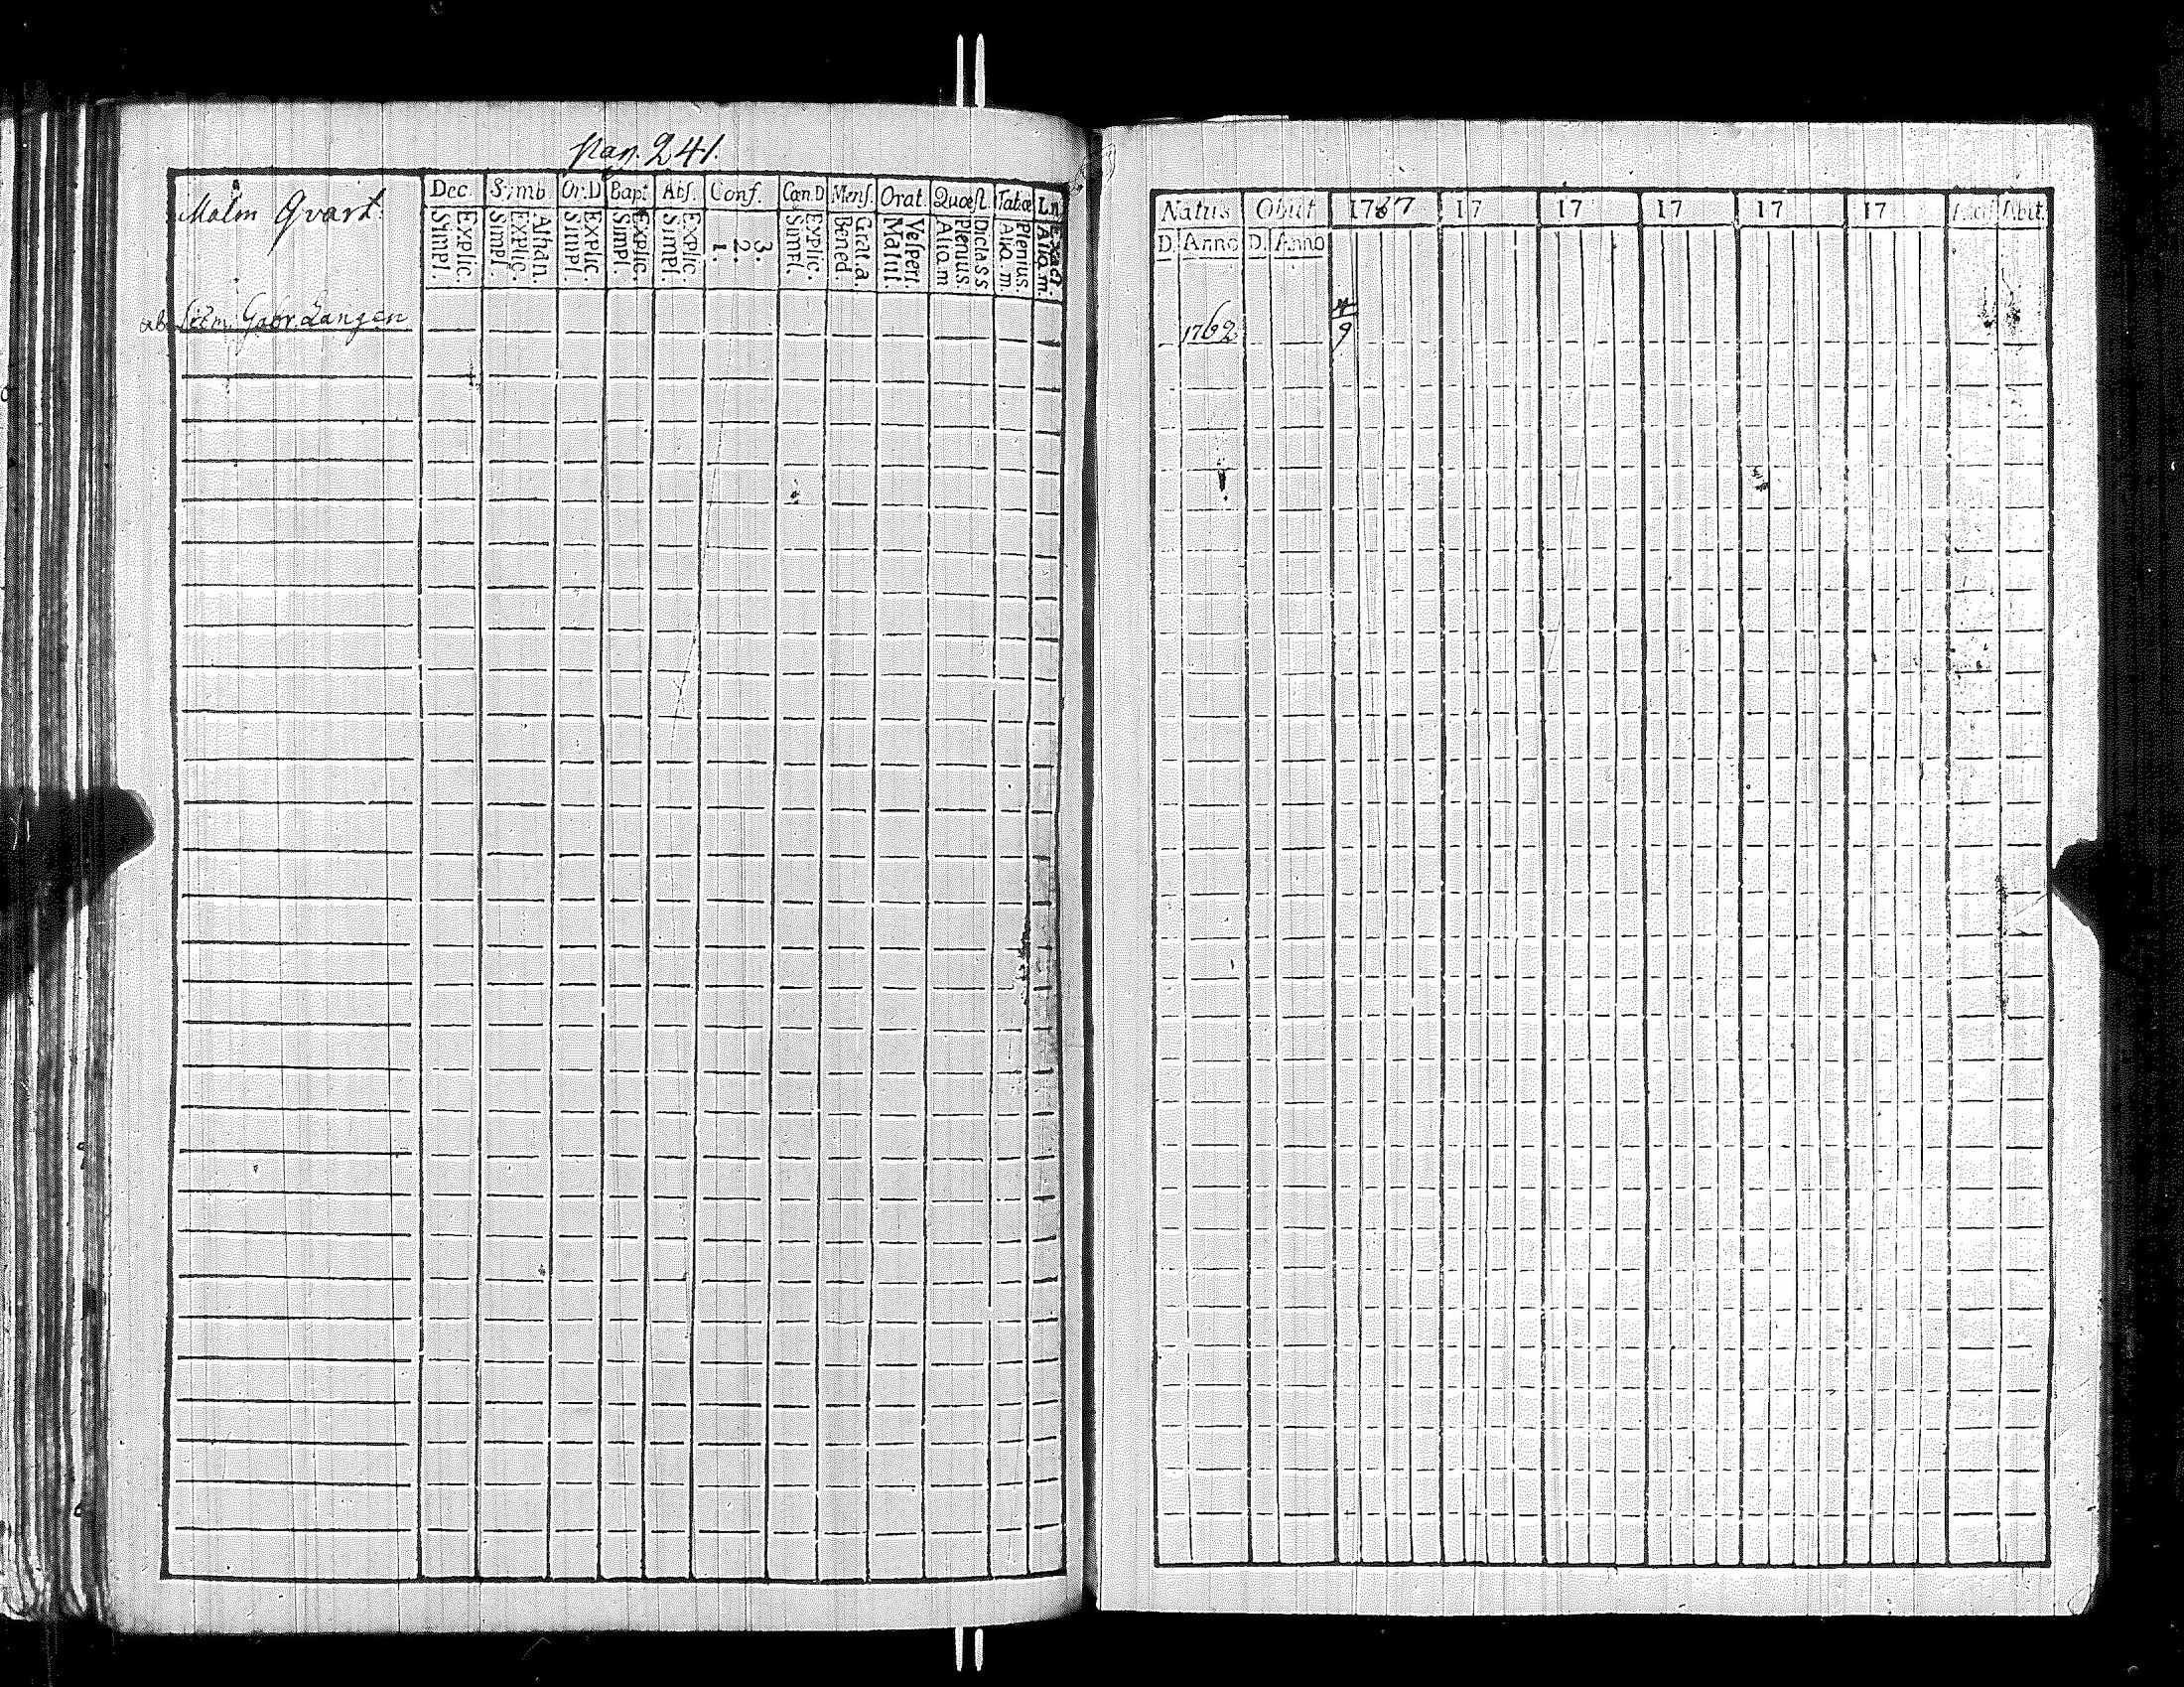 pag. 241.
Malm Qvart.
Dec. Symb Or.D Bapt Abs. Conf. Cœn.D Mens. Orat. Quæst Tabæ Ln
Simpl. Explic. Simpl. Explic. Athan. Simpl. Explic. Simpl. Explic. Simpl. Explic. 1. 2. 3. Simpl. Explic. Bened. Grat. a. Matut. Vespert. Aliq. m Plenius. Dict. a. s. s Aliq. m Plenius. Aliq. m. Exact
ab Gabr. Langén
Natus Obiit 1767 17 17 17 17 17 Abit.
D. Anno D. Anno
1762 9